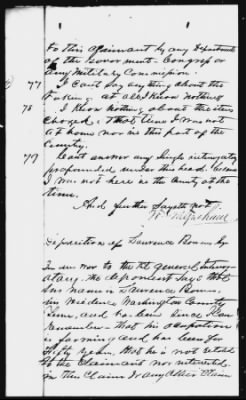 to this claimant by any Department
of the Government. Congress or
any Military Commission.
77 I Cant Say anything about the
taking at all I Know nothing
78 I Know nothing about the items
charged, that time I was not
at home nor in this part of the
County.
79 Cant answer any single interrogatory
propounded under this head. Because
I was not here in the County at the
time.
And further Sayeth not
Deposition of Lawrence
In answer to the 1st general Interrog-
atory. the deponent Says that
his name is Lawrence
his residence Washington County
Tenn, and has been Since I can
remember - that his occupation
is farming and has been for
fifty years, that he is not related
to the Claimant nor interested
in this Claim or any other Claim